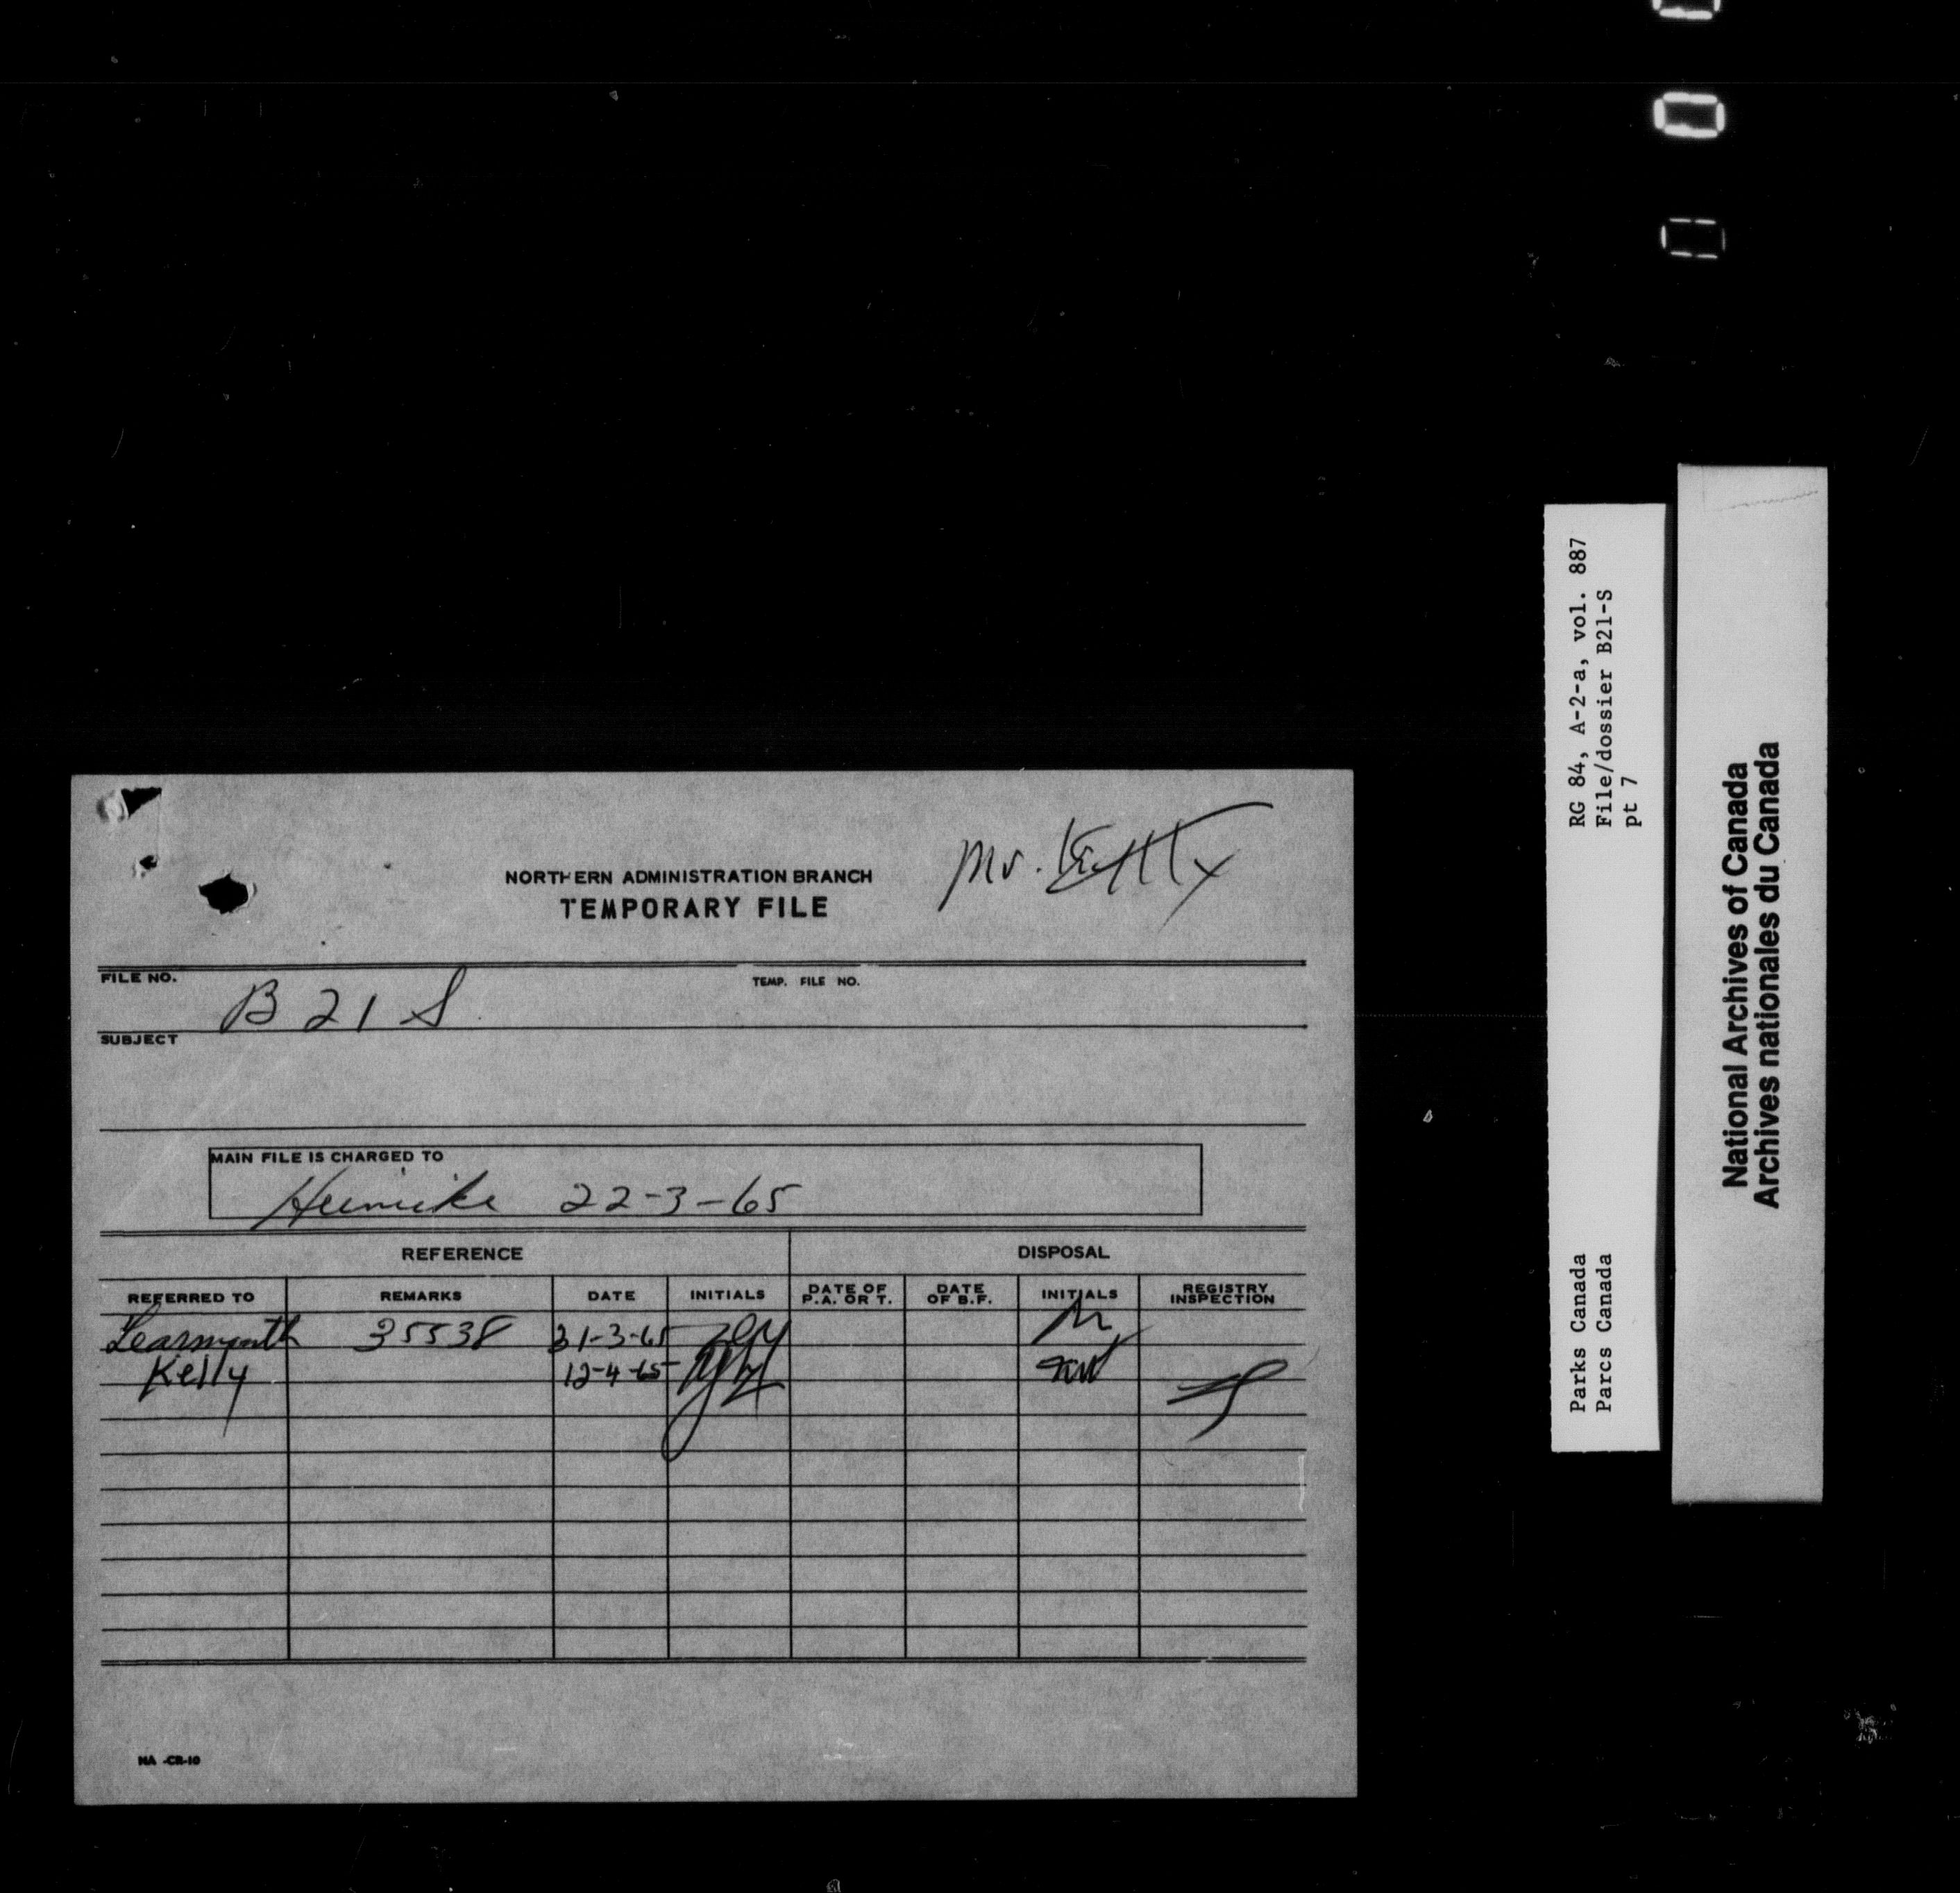 NORTHERN ADMINISTRATION BRANCH
TEMPORARY FILE
Mr. Kelly
FILE NO. B 21 S TEMP. FILE NO.
SUBJECT
MAIN FILE IS CHARGED TO
22-3-65
REFERENCE DISPOSAL
REFERRED TO REMARKS DATE INITIALS DATE OF P.A. OR T. DATE OF B.F. INITIALS REGISTRY INSPECTION
Learmonth 35538 31-3-65
Kelly 12-4-65
NA -CR-10
RG 84, A-2-a, vol. 887
File/dossier B21-S
pt 7
Parks Canada
Parcs Canada
National Archives of Canada
Archives nationales du Canada